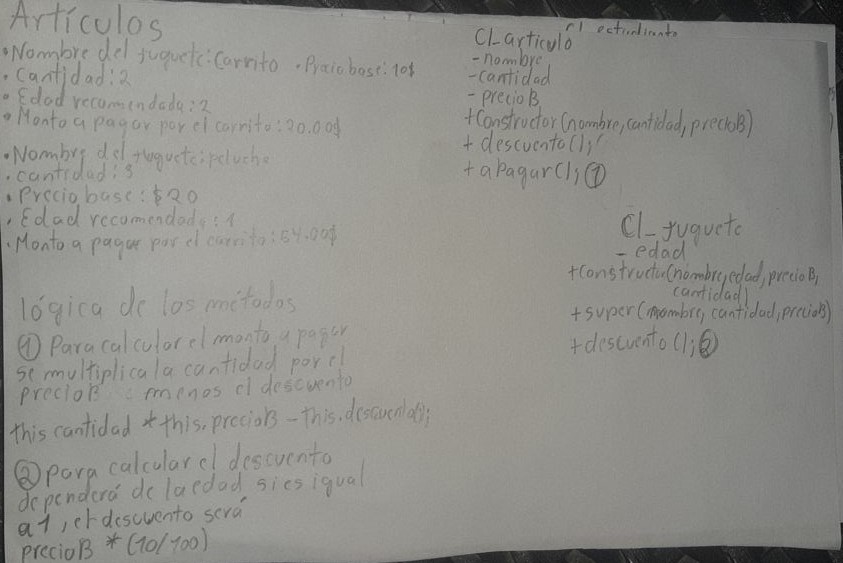 Artículos
•Nombre del juguete: Carrito •Precio base: 10$
•Cantidad: 2
•Edad recomendada: 2
•Monto a pagar por el carrito: 20.00$
•Nombre del juguete: peluche
•cantidad: 3
•Precio base: $20
•Edad recomendada: 1
•Monto a pagar por el carrito: 54.00$
lógica de los métodos
① Para calcular el monto a pagar
se multiplica la cantidad por el
precioB : menos el descuento
this cantidad * this.precioB - this.descuento();
② para calcular el descuento
dependerá de la edad si es igual
a 1, el descuento será
precioB * (10/100)
Cl_articulo
-nombre
-cantidad
-precioB
+constructor(nombre, cantidad, precioB)
+ descuento();
+ apagar(); ①
Cl_juguete
- edad
+constructor(nombre, edad, precioB,
cantidad)
+super(nombre, cantidad, precioB)
+descuento(); ②